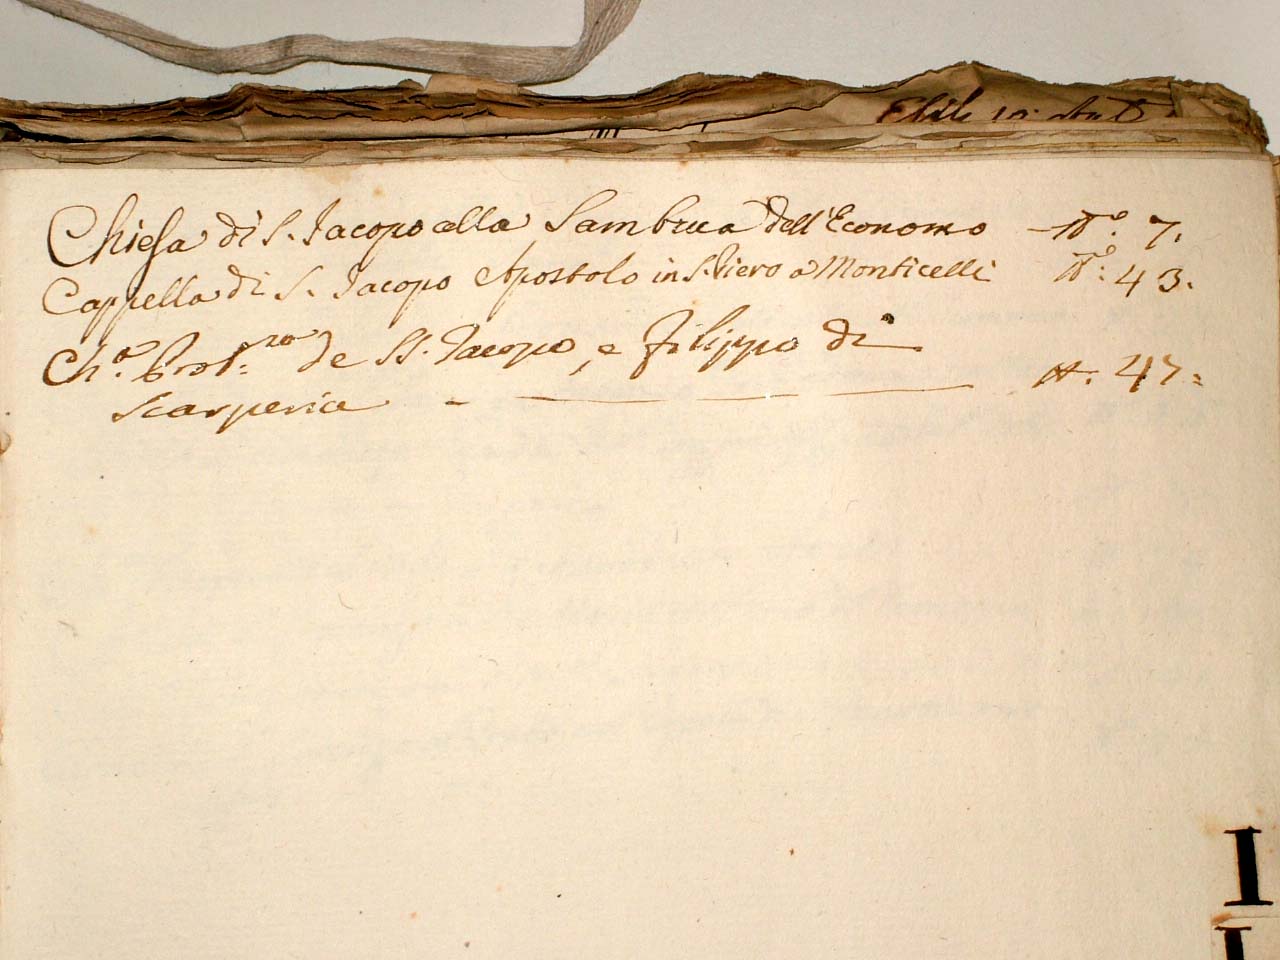 Chiesa di S. Jacopo alla Sambuca dell'Economo - N.º 7.
Cappella di S. Jacopo Apostolo in S. Piero a Monticelli N.º 43.
Ch.ª de SS. Jacopo, e Filippo di
Scarperia - N. 47.
I